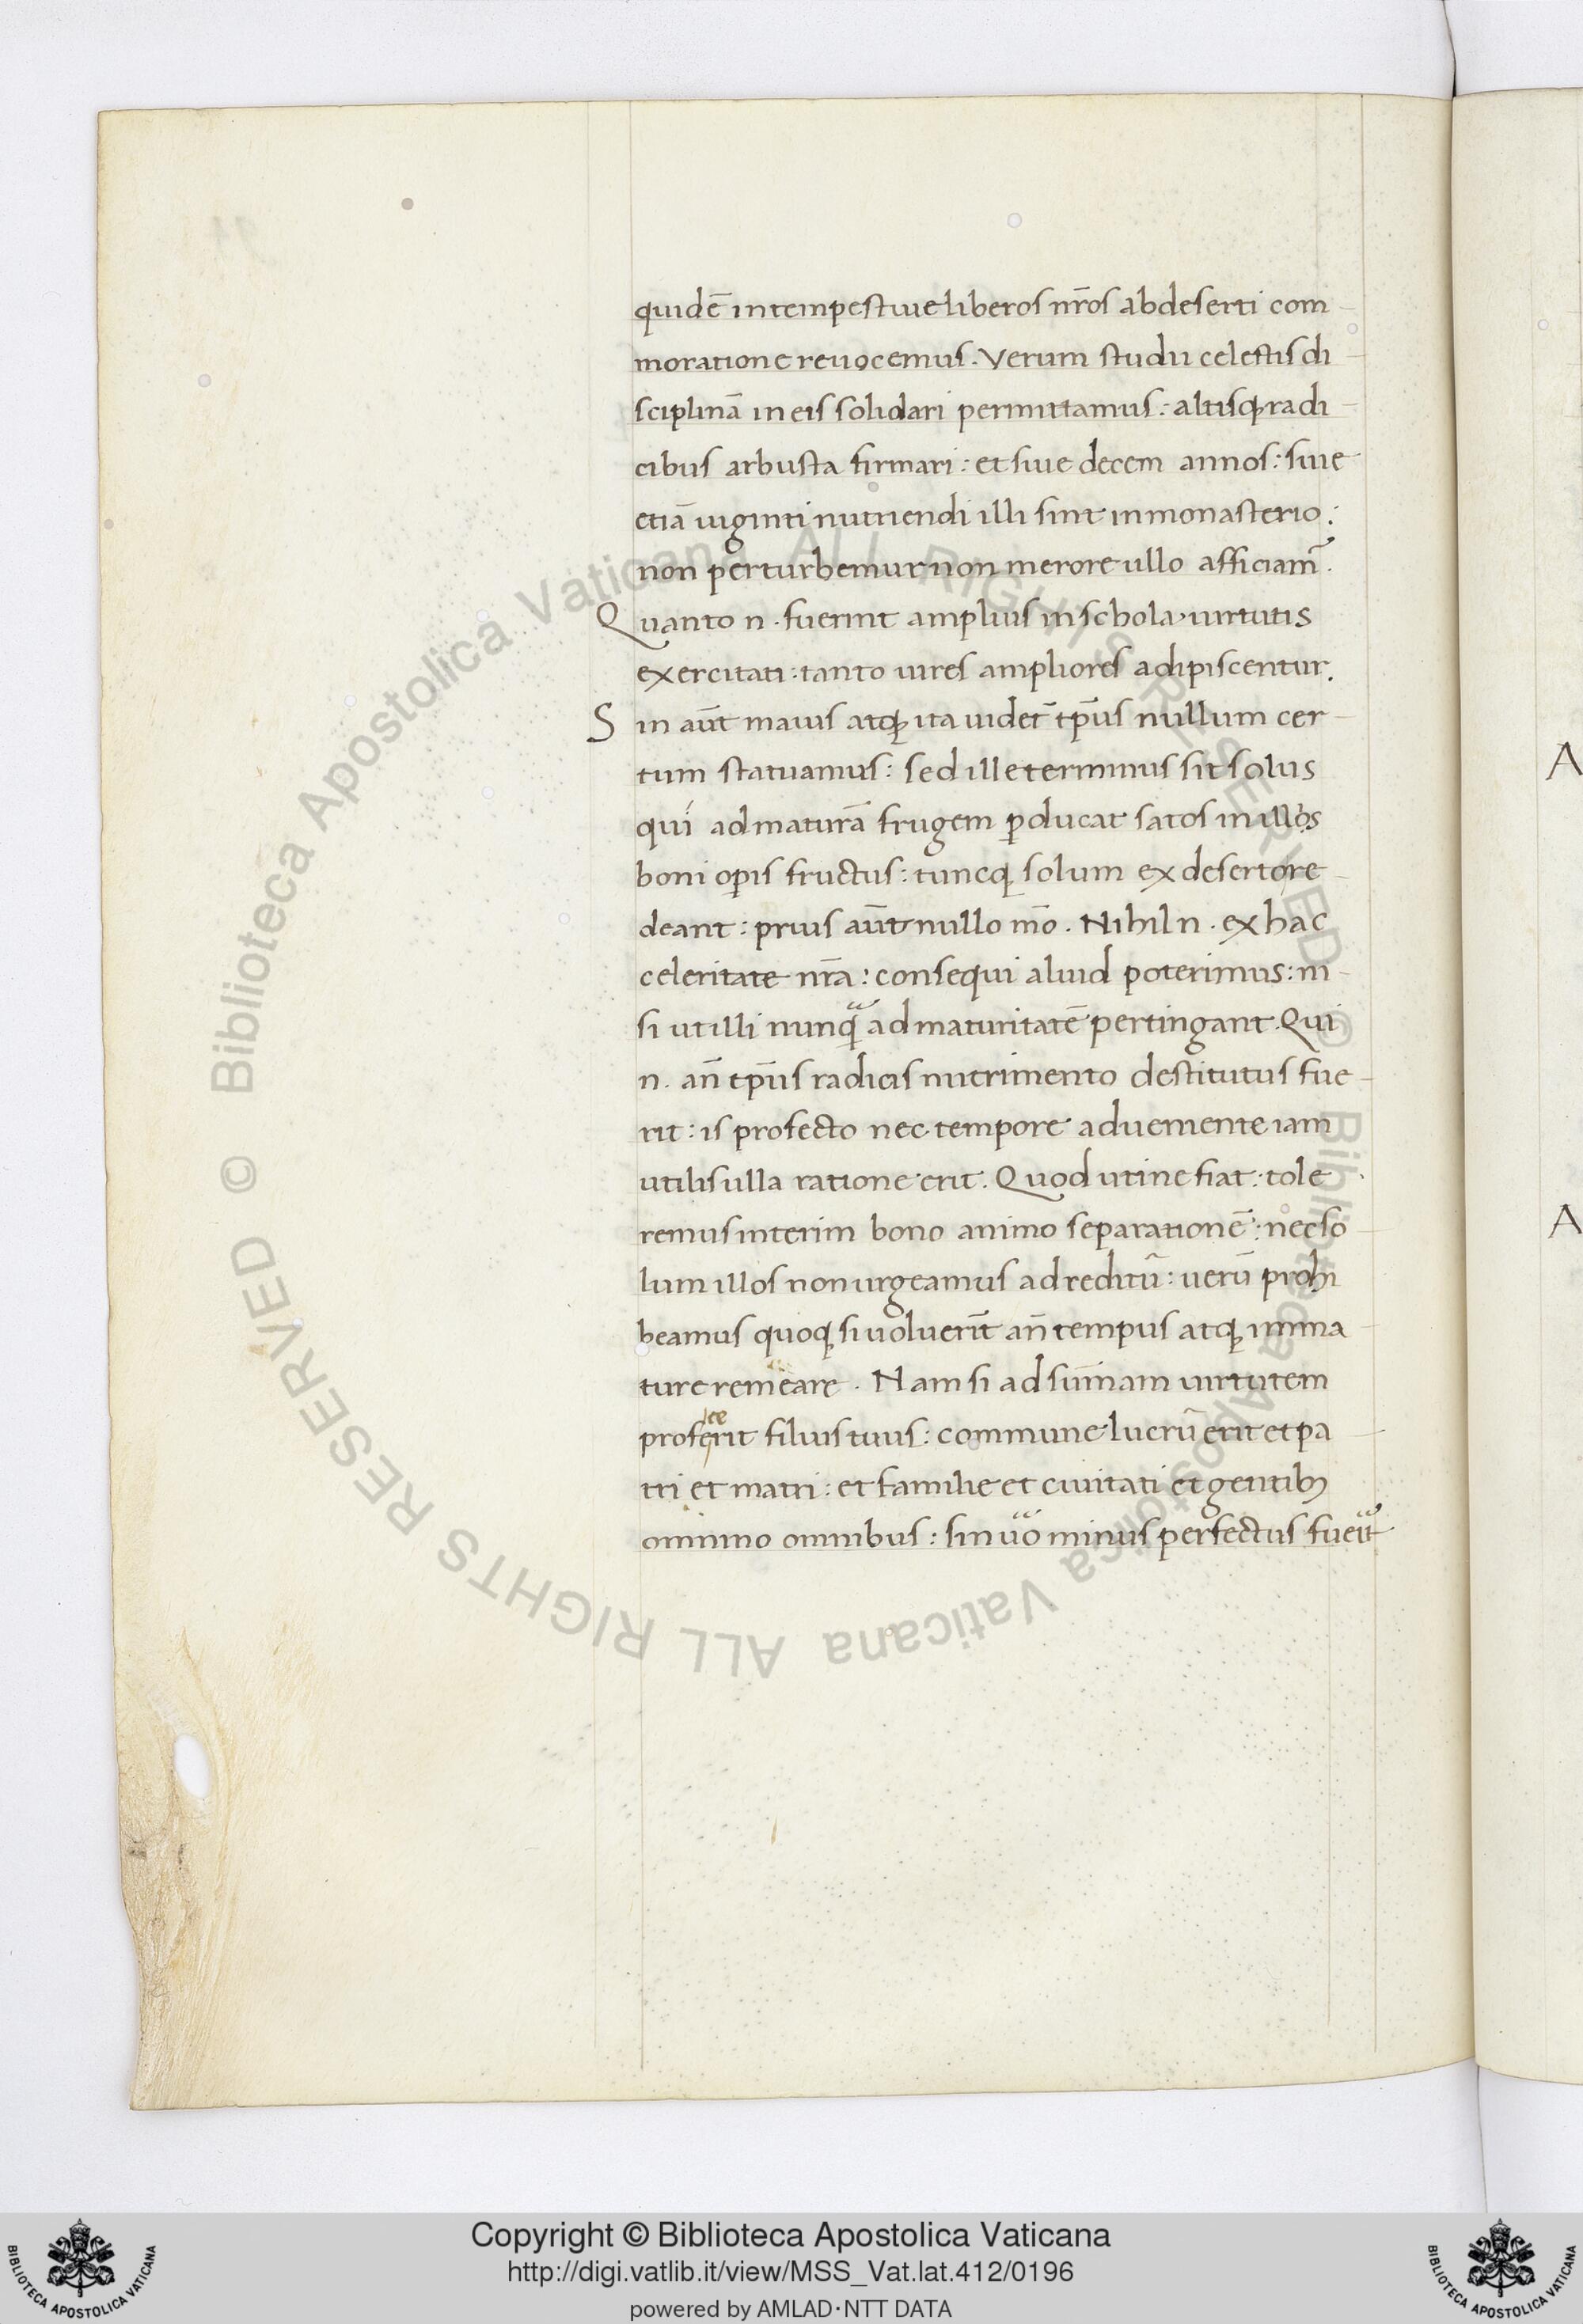 quidē intempestiue liberos nr̄os ab deserti com
moratione reuocemus. Verum studii celestis di
sciplinā in eis solidari permittamus: altisq; radi
cibus arbusta firmari: et siue decem annos: siue
etiā uiginti nutriendi illi sint in monasterio:
non perturbemur non merore ullo afficiam̄.
Quanto n. fuerint amplius in schola uirtutis
exercitati: tanto uires ampliores adipiscentur.
Sin aūt maius atq; ita uidet̄ tp̄us nullum cer
tum statuamus: sed ille terminus sit solus
qui ad maturā frugem ꝑducat satos in illos
boni oꝑis fructus: tuncq; solum ex deserto re
deant: prius aūt nullo mō. Nihil n. ex hac
celeritate nr̄a: consequi aliud poterimus: ni
si ut illi nunq̃ ad maturitatē pertingant. Qui
n. an̄ tp̄us radicis nutrimento destitutus fue
rit: is profecto nec tempore adueniente iam
utilis ulla ratione erit. Quod uti ne fiat: tole
remus interim bono animo separationē: nec so
lum illos non urgeamus ad reditū: uerū prohi
beamus quoq; si uoluerīt an̄ tempus atq; imma
ture remeare. Nam si ad sūmam uirtutem
proferit filius tuus: commune lucrū erit et pa
tri et matri: et familie et ciuitati et gentib;
omnino omnibus: sin uoᷓ minus perfectus fueıᷓt
Copyright © Biblioteca Apostolica Vaticana
http://digi.vatlib.it/view/MSS_Vat.lat.412/0196
powered by AMLAD·NTT DATA
BIBLIOTECA APOSTOLICA VATICANA
BIBLIOTECA APOSTOLICA VATICANA
© Biblioteca Apostolica Vaticana ALL RIGHTS RESERVED © Biblioteca Apostolica Vaticana ALL RIGHTS RESERVED
A
A